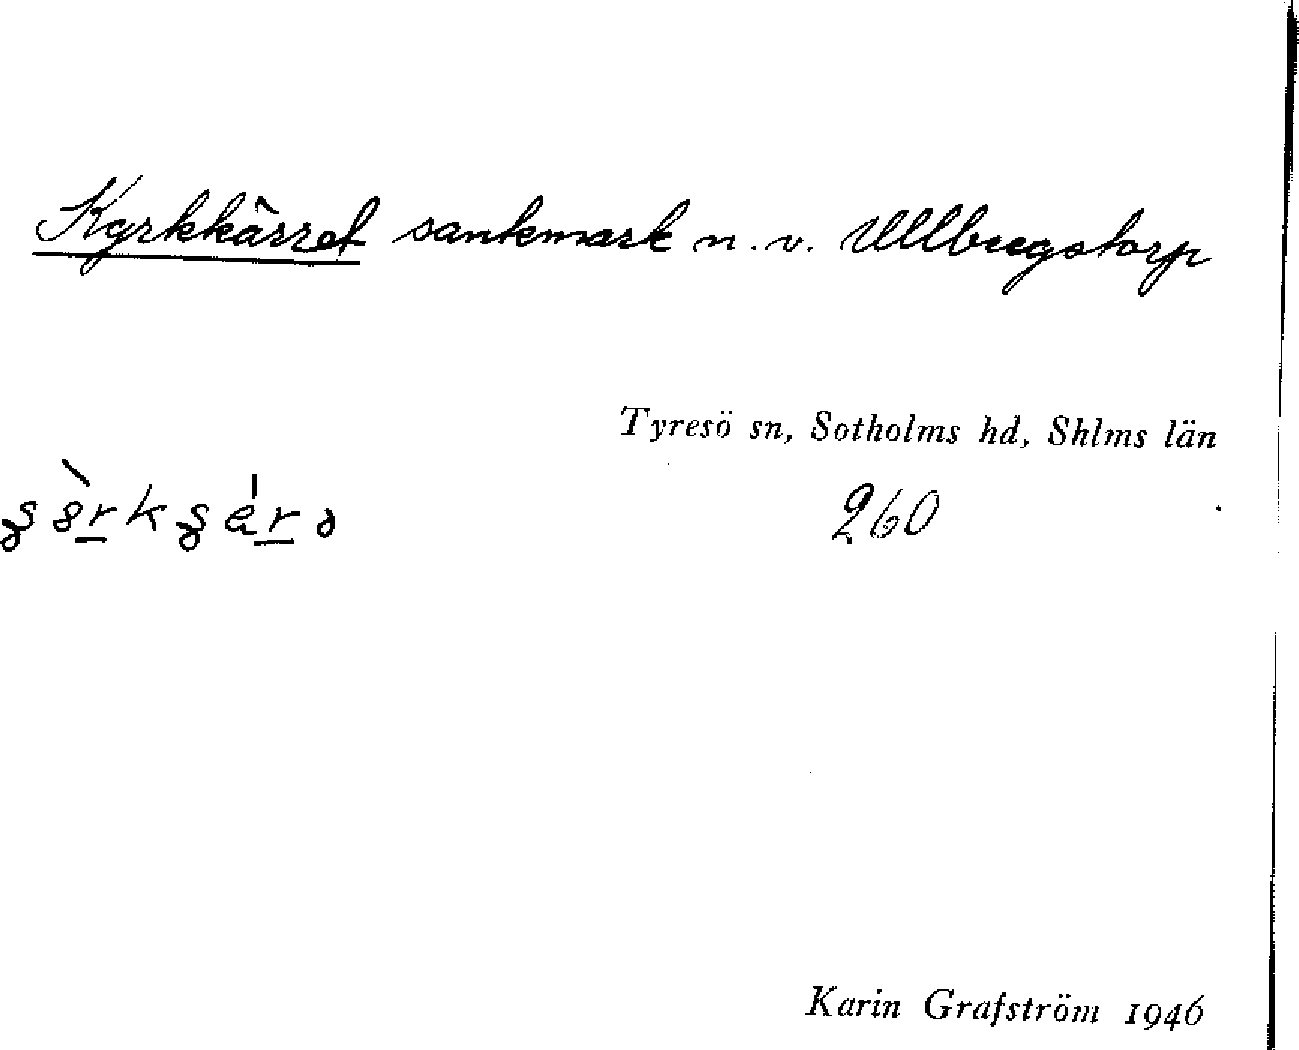 Kyrkkärret sankmark n.v. Ullbergstorp
Tyresö sn, Sotholms hd, Shlms län
260
Karin Grafström 1946